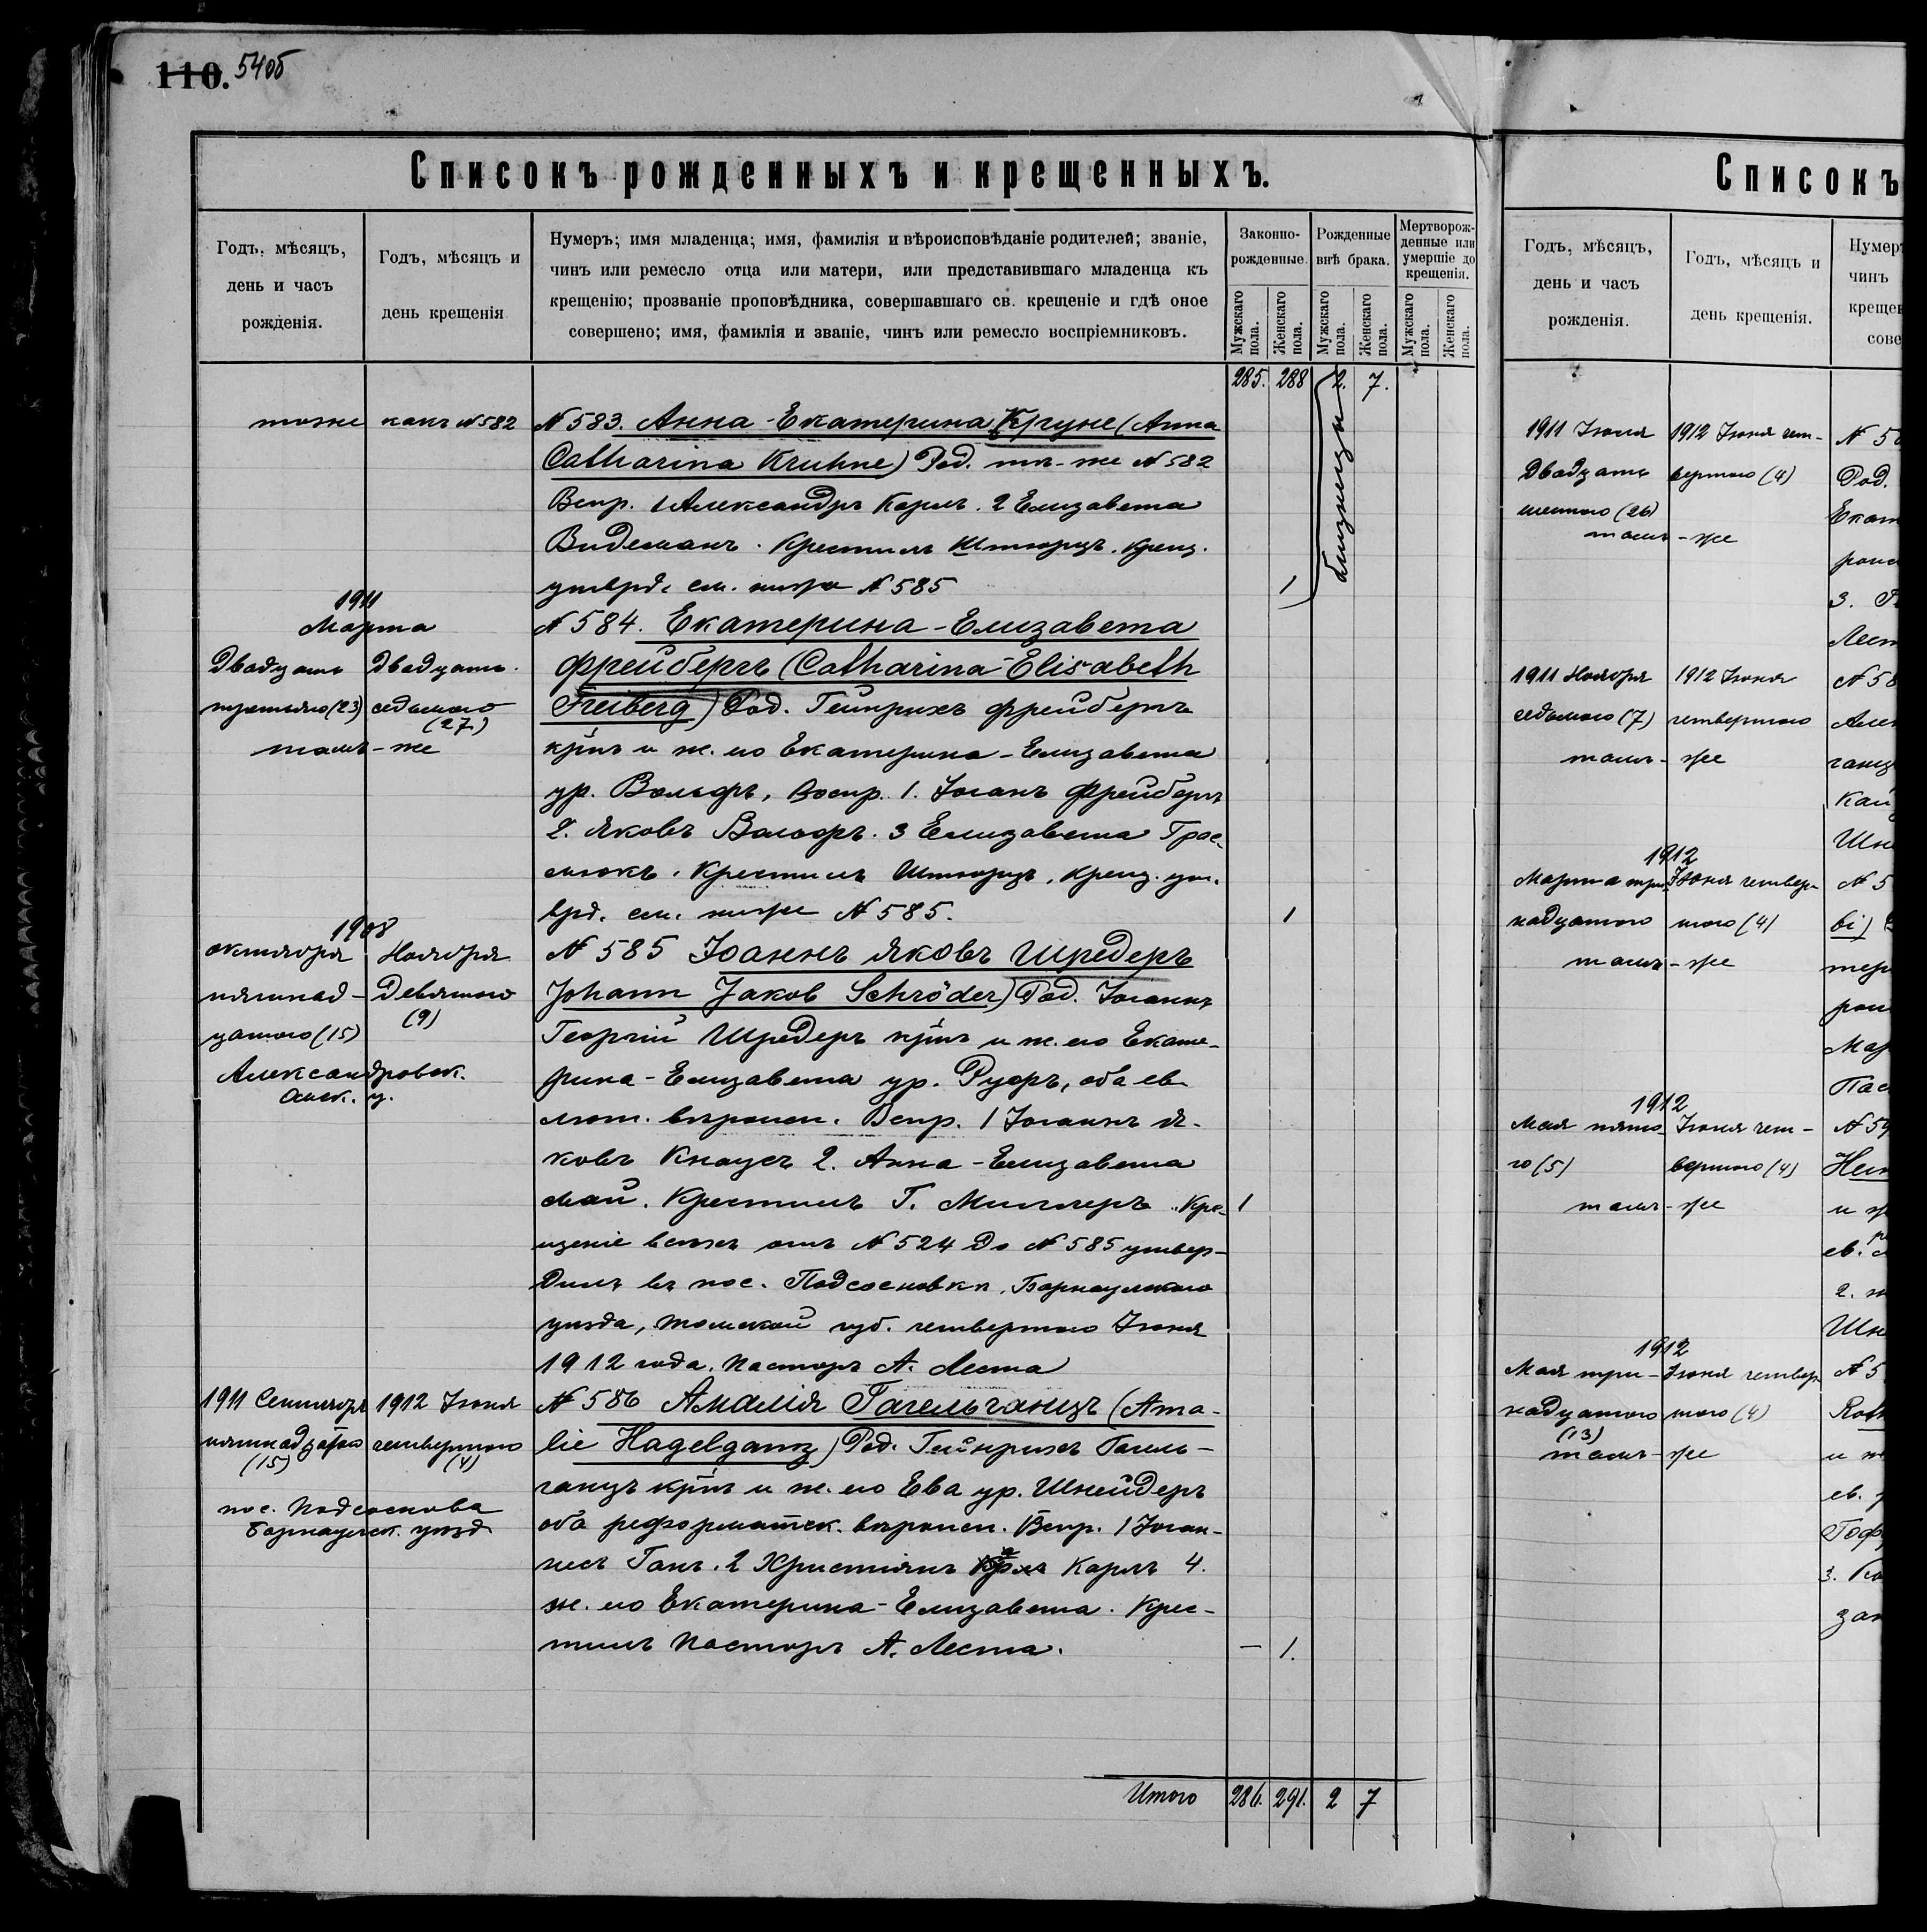 110. 54об
Списокъ рожденныхъ и крещенныхъ.
Годъ, мѣсяцъ, день и часъ рожденія.
Годъ, мѣсяцъ и день крещенія
Нумеръ; имя младенца; имя, фамилія и вѣроисповѣданіе родителей; званіе,
чинъ или ремесло отца или матери, или представившаго младенца къ
крещенію; прозваніе проповѣдника, совершавшаго св. крещеніе и гдѣ оное
совершено; имя, фамилія и званіе, чинъ или ремесло воспріемниковъ.
Законно-рожденные.
Рожденные внѣ брака.
Мертворож-денные или умершіе до крещенія.
Мужскаго пола. Женскаго пола. Мужскаго пола. Женскаго пола. Мужскаго пола. Женскаго пола.
285. 288 2. 7.
тоже какъ №582
№ 583. Анна-Екатерина Кругне (Anna
Catharina Kruhne) Род. тѣ-же № 582
Воспр. 1 Александръ Карлъ. 2 Елизавета
Видеманъ. Крестилъ Штюрцъ. Крещ.
утврд. см. ниже № 585
1
близнецы
1911
Марта
Двадцать третьяго (23)
Двадцать седьмого (27)
тамъ-же
№ 584. Екатерина-Елизавета
Фрейбергъ (Catharina-Elisabeth
Freiberg) Род. Гейнрихъ Фрейбергъ
кр-нъ и ж. его Екатерина-Елизавета
ур. Вольфъ, Воспр. 1. Іоганъ Фрейбергъ
2. Яковъ Вольфъ. 3 Елизавета Грас-
мюкъ. Крестилъ Штюрцъ, Крещ. ут-
врд. см. ниже № 585.
1
1908
октября пятнад-цатого (15)
Ноября Девятого (9)
Александровск.
№ 585 Іоаннъ Яковъ Шредеръ
Johann Jakob Schröder) Род. Іоганнъ
Георгій Шредеръ кр-нъ и ж. его Екате-
рина-Елизавета ур. Руфъ, оба ев.
лют. вѣроисп. Воспр. 1 Іоганнъ Я-
ковъ Кнаусъ 2. Анна-Елизавета
Май. Крестилъ Г. Миллеръ. Кре-
щеніе всѣхъ отъ № 524 до № 585 утвер-
дилъ въ пос. Подсосновкѣ, Барнаульского
уѣзда, Томской губ. четвертого Іюня
1912 года. Пасторъ А. Леста
1
1911 Сентября пятнадцатого (15)
1912 Іюня четвертого (4)
пос. Подсоснова
Барнаульск. уѣзд.
№ 586 Амалія Гагельганцъ (Ama-
lie Hagelganz) Род. Гейнрихъ Гагель-
ганцъ кр-нъ и ж. его Ева ур. Шнейдеръ
оба реформатск. вѣроисп. Воспр. 1 Іоган-
несъ Ганъ. 2 Христіанъ Карлъ 4.
ж. его Екатерина-Елизавета. Крес-
тилъ Пасторъ А. Леста.
— 1.
Итого 286. 291. 2 7
Списокъ
Годъ, мѣсяцъ, день и часъ рожденія.
Годъ, мѣсяцъ и день крещенія.
Нумеръ
чинъ
крещен
сове
1911 Іюля Двадцать шестого (26)
1912 Іюня чет-вертого (4)
тамъ-же
Род.
Екат
3.
Лест
1911 Ноября седьмого (7)
1912 Іюня четвертого
тамъ-же
№ 58
ганц
1912
Марта три-надцатого
Іюня четвер-того (4)
тамъ-же
№ 5
Мар
Пас
1912
Мая пято-го (5)
Іюня чет-вертого (4)
тамъ-же
№ 59
и ж
2.
1912
Мая три-надцатого (13)
Іюня четвер-того (4)
тамъ-же
№ 5
Roth
и ж
ев.
Гоф